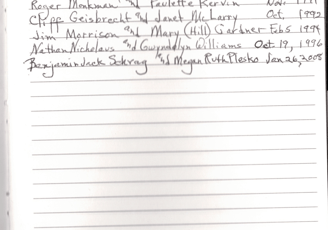 Roger Monkman and Paulette Kervin Nov.
Cliff Geisbrecht and Janet McLarry Oct, 1992
Jim Morrison and Mary (Hill) Gardner Feb 5 1994
Nathan Nicholaus and Gwyndolyn Williams Oct 19, 1996
Benjamin Jack Schrag and Megan Ruth Plesko Jan 26, 2008